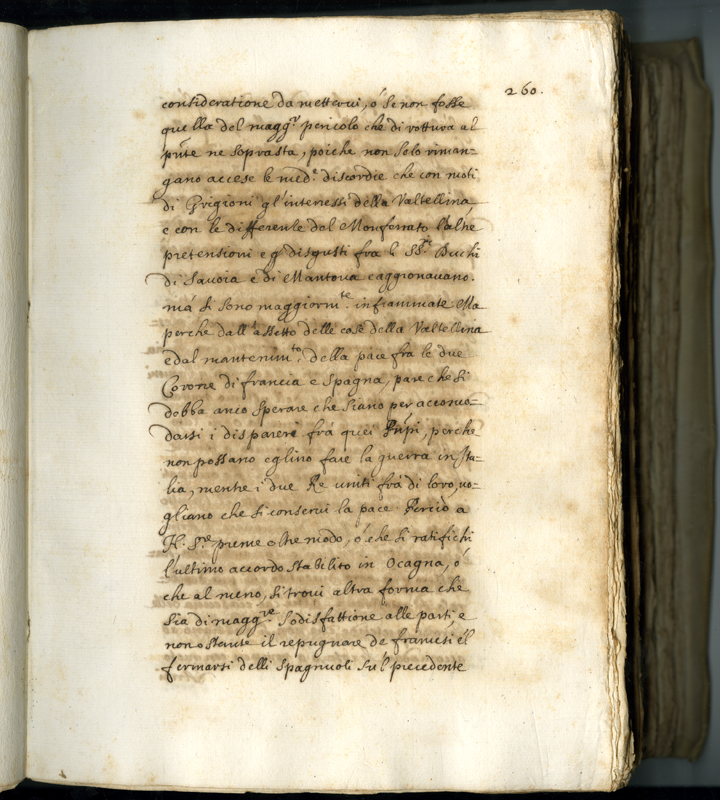 260.
consideratione da mettervi, ó se non fosse
quella del magg.r pericolo che di rottura al
pñte ne soprasta, poiche non solo riman=
gano accese le med.e discordie che con moti
di Grigioni gl'interessi della Valtellina,
e con le differenze del Monferrato l'altre
pretensioni e g' disgusti fra l SS.ri Duchi
di Savoia e di Mantova caggionavano.
má si sono maggiorm.te infiammate Ma
perche dall'assetto delle cose della Valtellina
e dal mantenim.to della pace fra le due
Corone di francia e Spagna, pare che si
dobba anco sperare che siano per accomo=
darsi i dispareri frá quei Prñpi, perche
non possano eglino fare la guerra in Ita=
lia, mentre i due Re uniti frá di loro, vo=
gliano che si conservi la pace. Perciò a
N. S.re preme oltre modo, ó che si ratifichi
l'ultimo accordo stabilito in Ocagna, ó
che al meno, si trovi altra forma che
sia di magg.re sodisfattione alle parti e
non ostante il repugnare de francesi él
fermarsi delli Spagnuoli sul precedente